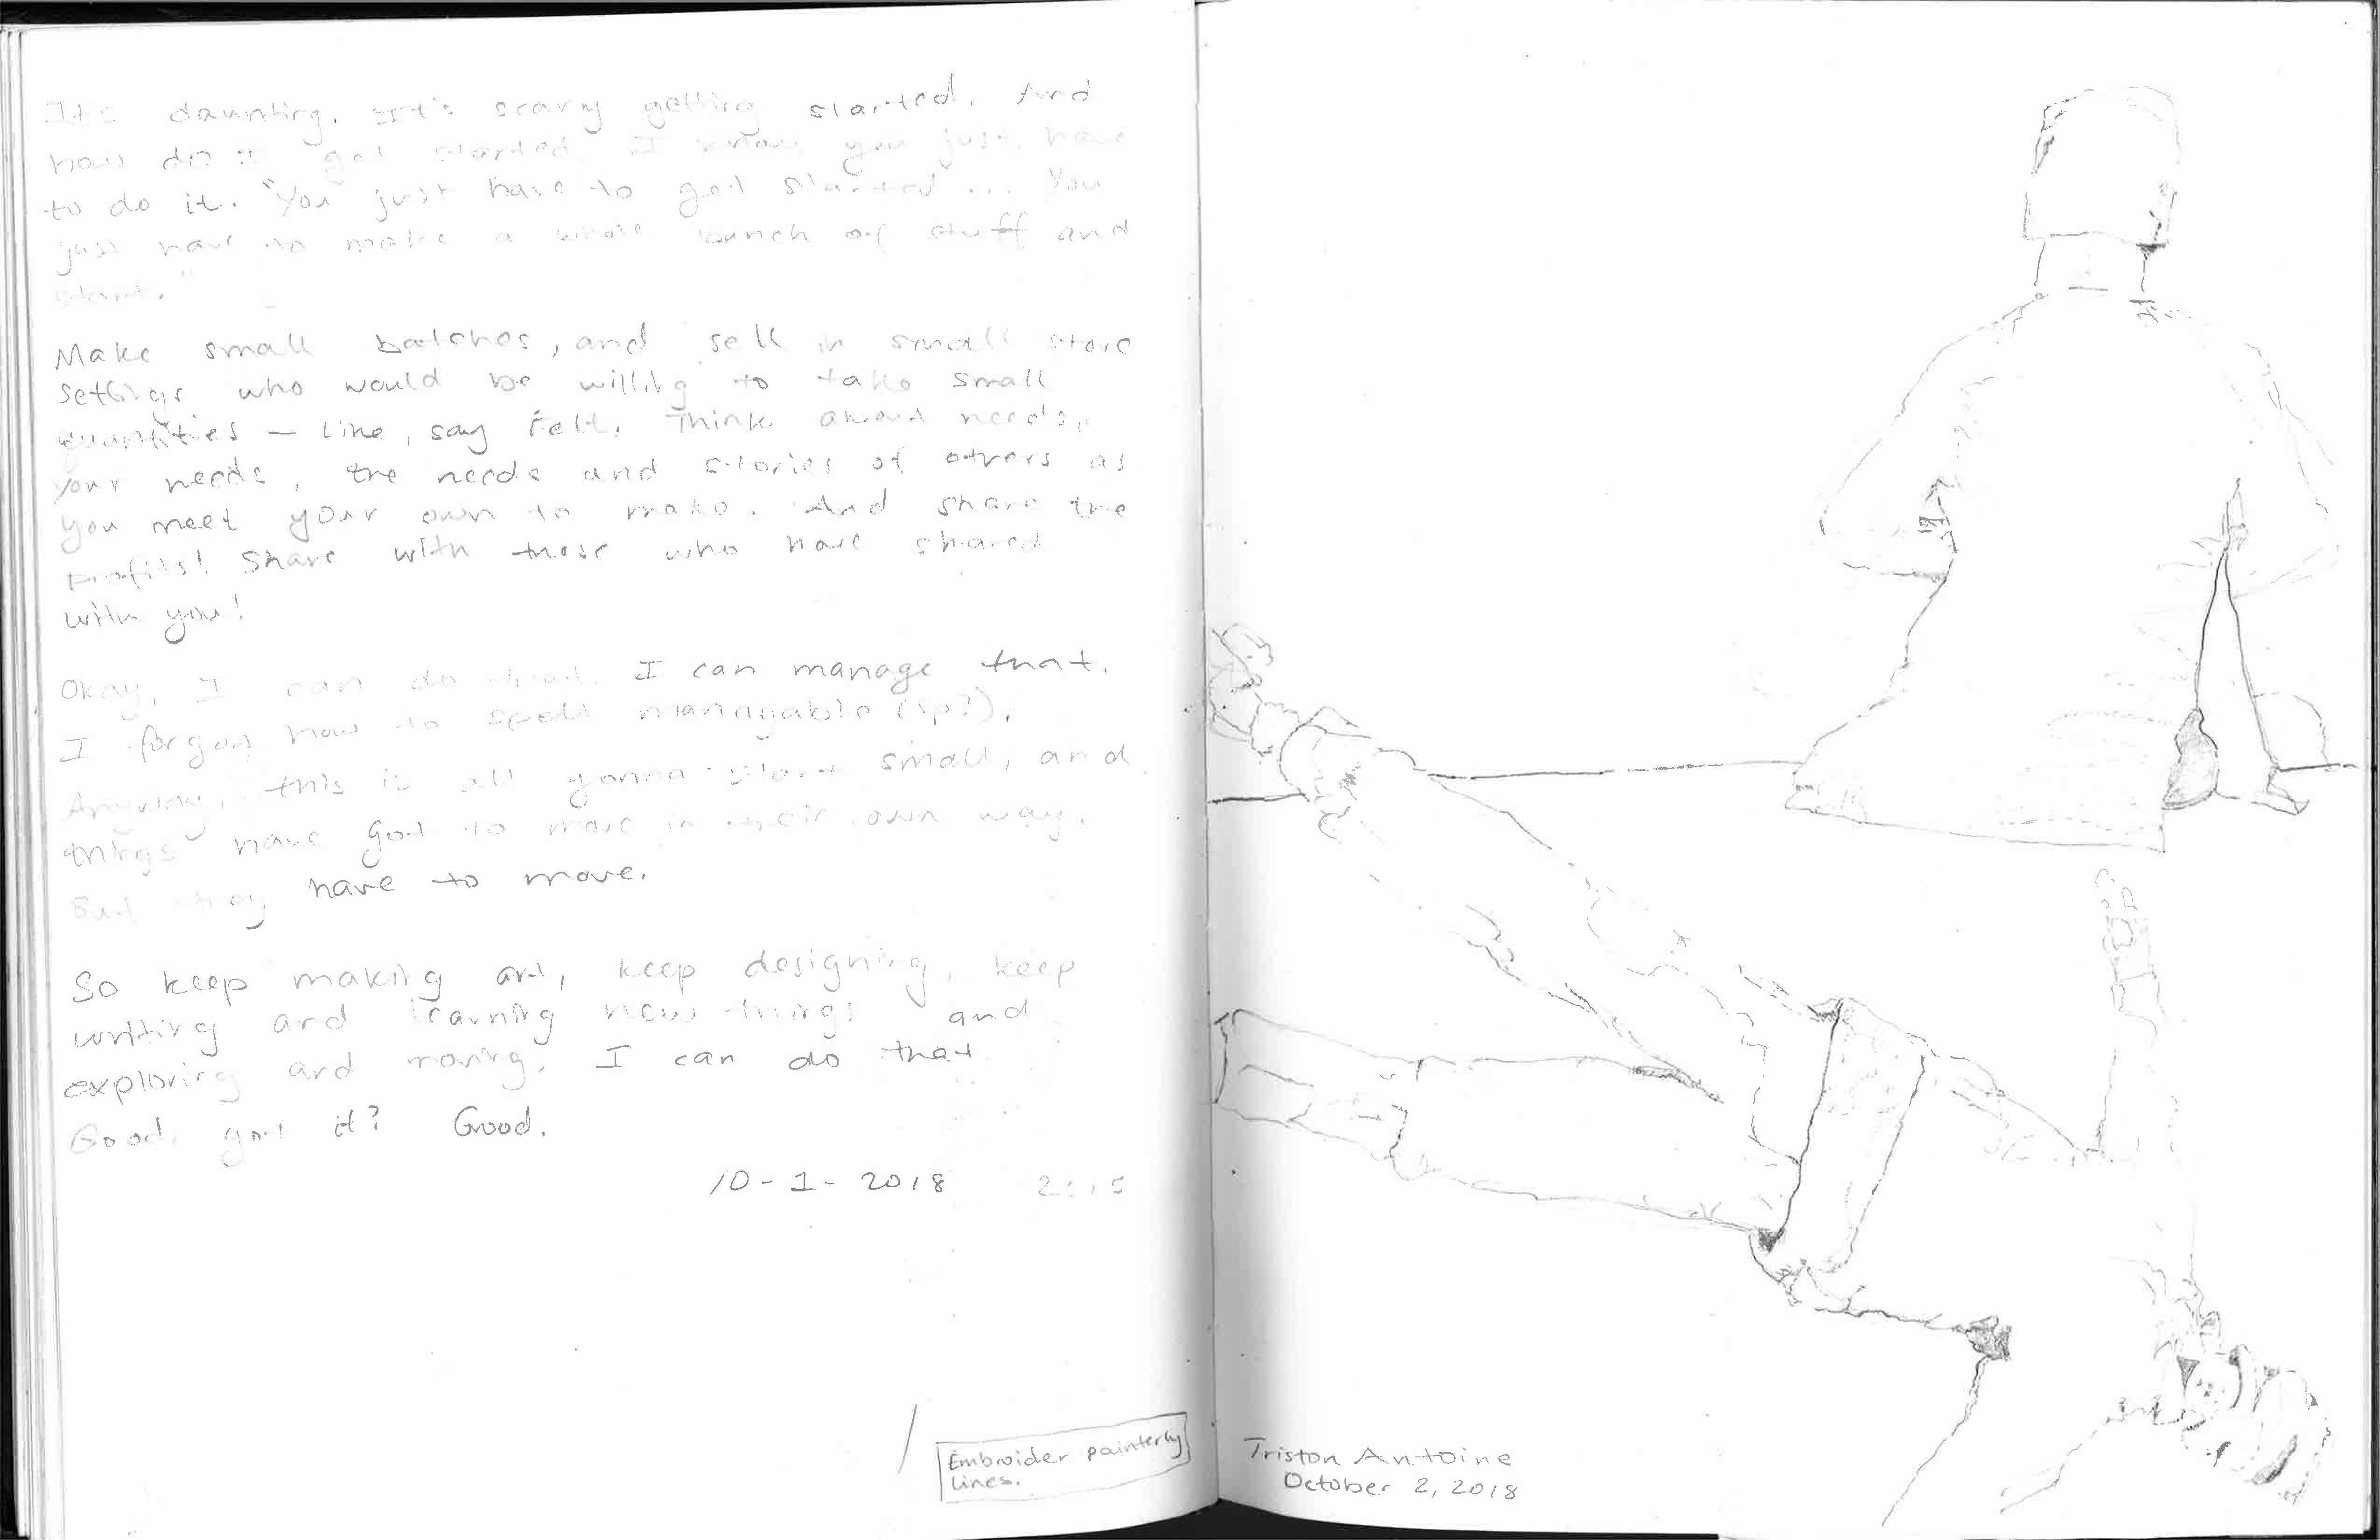 It's daunting. It's scary getting started. And
how do I get started. I know you just have
to do it. "You just have to get started... You
just have to make a whole bunch of stuff and
start."
Make small batches, and sell in small store
settings who would be willing to take small
quantities — like, say Felt. Think about needs,
your needs, the needs and stories of others as
you meet your own to make. And share the
profits! Share with those who have shared
with you!
Okay, I can do that. I can manage that.
I forgot how to spell managable (sp?).
Anyway, this is all gonna start small, and
things have got to move in their own way.
But they have to move.
So keep making art, keep designing, keep
writing and learning new things and
exploring and moving. I can do that
Good, got it? Good.
10-1-2018 2:15
Embroider painterly
lines.
Triston Antoine
October 2, 2018